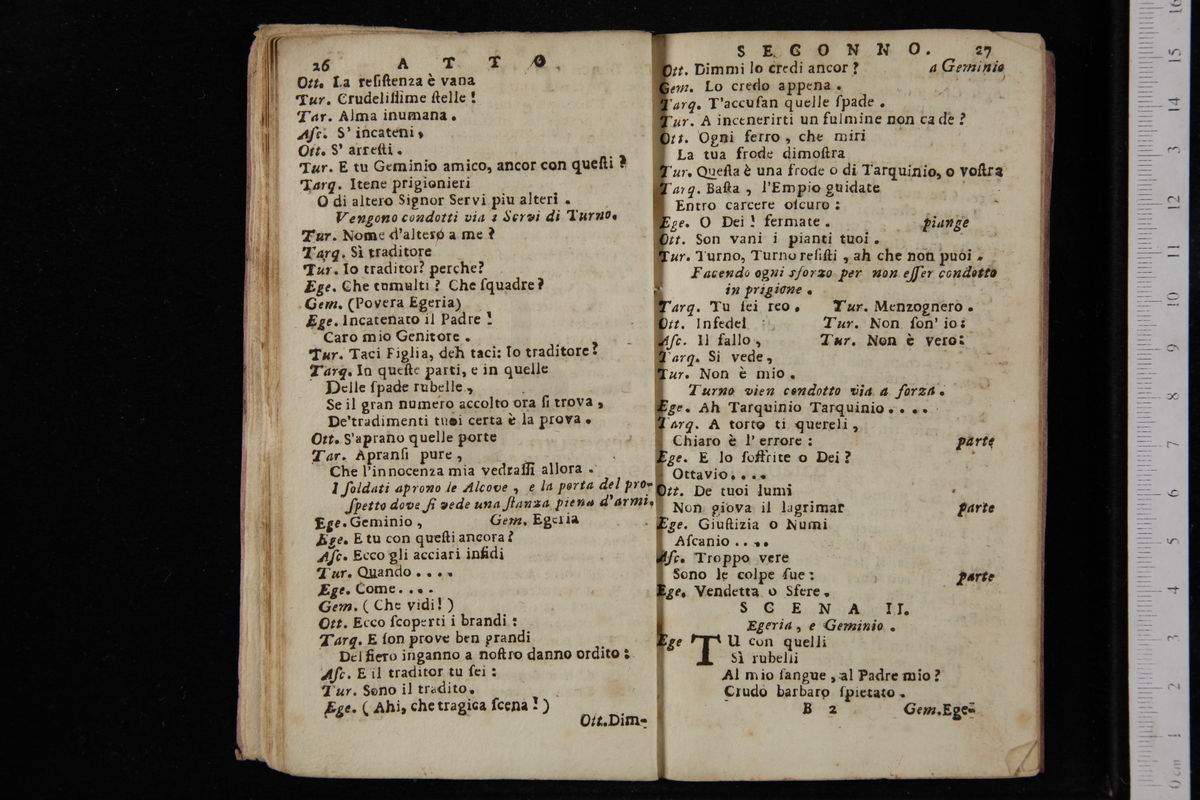 26 A T T O
Ott. La reſiſtenza è vana
Tur. Crudeliſſime ſtelle !
Tar. Alma inumana .
Aſc. S' incateni ,
Ott. S' arreſti .
Tur. E tu Geminio amico, ancor con queſti ?
Tarq. Itene prigionieri
O di altero Signor Servi piu alteri .
Vengono condotti via i Servi di Turno.
Tur. Nome d'altero a me ?
Tarq. Sì traditore
Tur. Io traditor? perche?
Ege. Che tumulti ? Che ſquadre ?
Gem. (Povera Egeria)
Ege. Incatenato il Padre !
Caro mio Genitore .
Tur. Taci Figlia, deh taci: Io traditore ?
Tarq. In queſte parti, e in quelle
Delle ſpade rubelle ,
Se il gran numero accolto ora ſi trova ,
De'tradimenti tuoi certa è la prova .
Ott. S'aprano quelle porte
Tar. Apranſi pure ,
Che l'innocenza mia vedraſſi allora .
I ſoldati aprono le Alcove , e la porta del pro-
ſpetto dove ſi vede una ſtanza piena d'armi.
Ege. Geminio , Gem. Egeria
Ege. E tu con queſti ancora ?
Aſc. Ecco gli acciari infidi
Tur. Quando . . . .
Ege. Come. . . .
Gem. ( Che vidi ! )
Ott. Ecco ſcoperti i brandi :
Tarq. E ſon prove ben grandi
Del fiero inganno a noſtro danno ordito :
Aſc. E il traditor tu ſei :
Tur. Sono il tradito.
Ege. ( Ahi, che tragica ſcena ! )
Ott. Dim-
S E C O N N O. 27
Ott. Dimmi lo credi ancor ? a Geminio
Gem. Lo credo appena .
Tarq. T'accuſan quelle ſpade .
Tur. A incenerirti un fulmine non ca de ?
Ott. Ogni ferro , che miri
La tua frode dimoſtra
Tur. Queſta è una frode o di Tarquinio, o voſtra
Tarq. Baſta , l'Empio guidate
Entro carcere oſcuro :
Ege. O Dei ! fermate . piange
Ott. Son vani i pianti tuoi .
Tur. Turno, Turno reſiſti , ah che non puoi .
Facendo ogni sforzo per non eſſer condotto
in prigione .
Tarq. Tu ſei reo . Tur. Menzognero .
Ott. Infedel Tur. Non ſon' io :
Aſc. Il fallo , Tur. Non è vero :
Tarq. Si vede ,
Tur. Non è mio .
Turno vien condotto via a forza .
Ege. Ah Tarquinio Tarquinio . . . .
Tarq. A torto ti quereli ,
Chiaro è l' errore : parte
Ege. E lo ſoffrite o Dei ?
Ottavio . . . .
Ott. De tuoi lumi
Non giova il lagrimar parte
Ege. Giuſtizia o Numi
Aſcanio . . . .
Aſc. Troppo vere
Sono le colpe ſue : parte
Ege. Vendetta o Sfere .
S C E N A II.
Egeria , e Geminio .
Ege TU con quelli
Sì rubelli
Al mio ſangue , al Padre mio ?
Crudo barbaro ſpietato .
B 2 Gem. Ege-